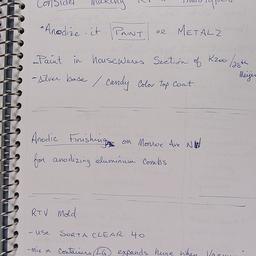 Consider Making
• Anodize it PAINT or METALZ
- Paint in housewares section of K200/28th Meijer
- Silver base / candy color top coat
Anodic Finishing on Monroe Ave NW
for anodizing aluminum combs
RTV Mold
- use SORTA CLEAR 40
- mix in container/LG expands huge when